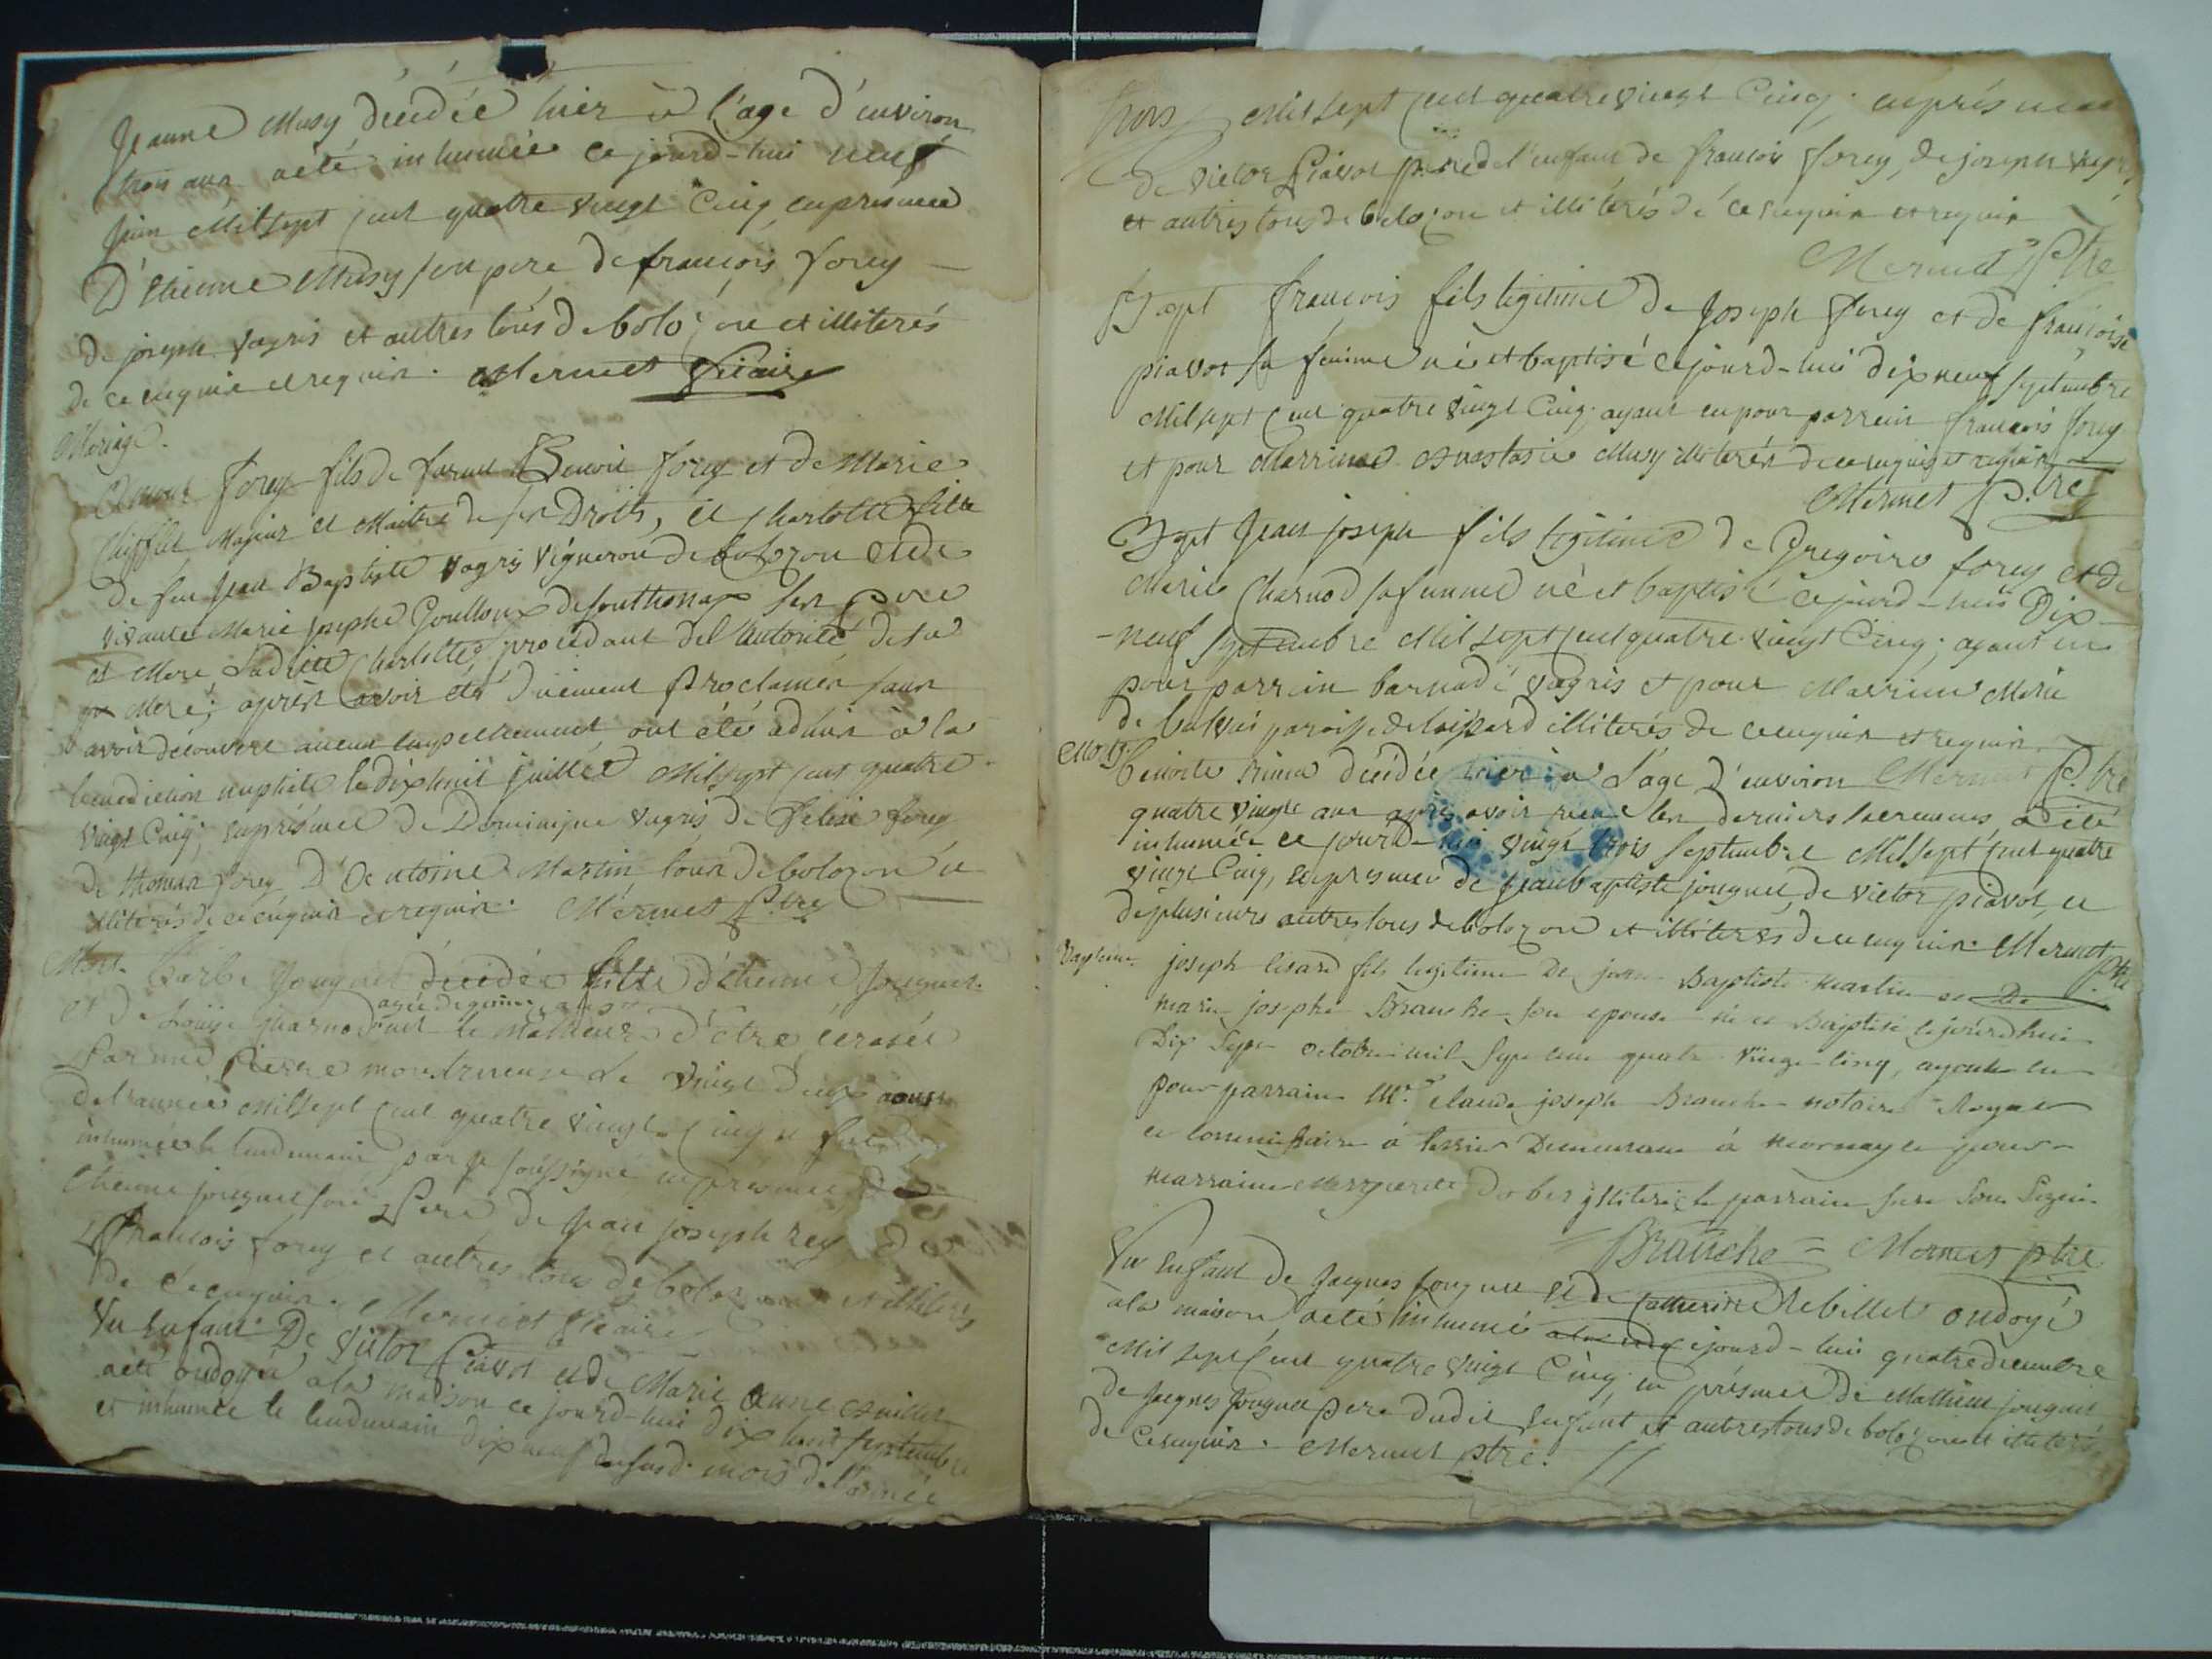 Jeanne Musy décédée hier a l'age d'environ
trois ans aété inhumée ce jourd-hui neuf
juin Mil sept cent quatre vingt Cinq enprésence
D'Etienne Musy son pere de françois forey
de joseph vagris et autres tous de bolozon et illiterés
de ce enquis et requis. Mermet Vicaire
Mariage.
forey fils de Benoit forey et de Marie
Majeur et Maitre de ses Droits, et Charlotte fille
de feu Jean Baptiste vagris vigneron de bolozon et de
vivante Marie josephe Goulloux de southonax ses pere
et Mere Ladite Charlotte, procédant de l'autorité de sa
Mere; après avoir été duement proclamés sans
avoir découvert aucun empechement ont été admis a la
benediction nuptiale le dixhuit juillet Mil sept cent quatre
vingt Cinq; enprésence de Dominique vagris de felix forey
de thomas forey D'Antoine Martin tous de bolozon et
illiterés de ce enquis et requis. Mermet p.tre
Mort. Barbe Jouguet décédée fille d'Etienne Jouguet
agée de quinze ans
et de Louise charnod eut le Malheur d'être écrasée
Par une Pierre monstrueuse le vingt deux aoust
del'année Mil sept cent quatre vingt Cinq et fut
inhumée le lendemain par je soussigné enprésence
Etienne jouguet son Pere de Jean joseph rey de
françois forey et autres tous de bolozon et illiterés
de ce enquis. Mermet Vicaire
Un Enfant De Victor Piavot et de Marie Anne
aété ondoyé a la maison ce jourd-hui dix huit septembre
et inhumée le lendemain dixneuf dususd. mois de l'année
Mil sept cent quatre vingt Cinq; enprésence
de victor Piavot pere del'enfant de françois forey, de joseph vagris
et autres tous de bolozon et illitérés de ce enquis et requis
Mermet P.tre
Bapt françois fils légitime de Joseph forey et de françoise
piavot sa femme né et baptisé ce jourd-hui dixneuf septembre
Mil sept cent quatre vingt Cinq; ayant eu pour parrein françois forey
et pour Marrine anastasie Musy illiterés de ce enquis et requis
Mermet p.tre
Bapt Jean joseph fils légitime de Gregoire forey et de
Marie Charnod sa femme né et baptisé ce jourd-hui Dix-
-neuf septembre Mil sept cent quatre vingt Cinq; ayant eu
pour parrein barnabé vagris et pour Marrine Marie
de paroisse de illiterés de ce enquis et requis.
Mort Benoite décédée hier a l'age d'environ Mermet P.tre
quatre vingts ans après avoir recu les derniers sacremens a été
inhumée ce jourd-hui vingt trois septembre Mil sept cent quatre
vingt Cinq, enprésence de jean baptiste jouguet, de victor piavot, et
deplusieurs autres tous de bolozon et illitérés de ce enquis. Mermet Ptre
Bapteme joseph lisard fils legitime De jean Baptiste Martin et De
marie josephe Branche son epouse né et Baptisé cejourdhui
Dix Sept octobre mil sept cent quatre vingt cinq, ayant eu
pour parrain Mr. claude joseph Branche notaire Royal
et commissaire à terrier Demeurant à Mornay et pour
marraine Marguerite illiterée le parrain sera Sous Signé
Branche = Mermet ptre
Un Enfant de Jacques Jouguet et de Catherine rebillet ondoyé
ala maison aété inhumé cejourd-hui quatre décembre
Mil sept cent quatre vingt Cinq; en présence de Mathieu jouguet
de Jacques Jouguet pere dudit Enfant et autres tous de bolozon et illiterés
de ce enquis. Mermet ptre.